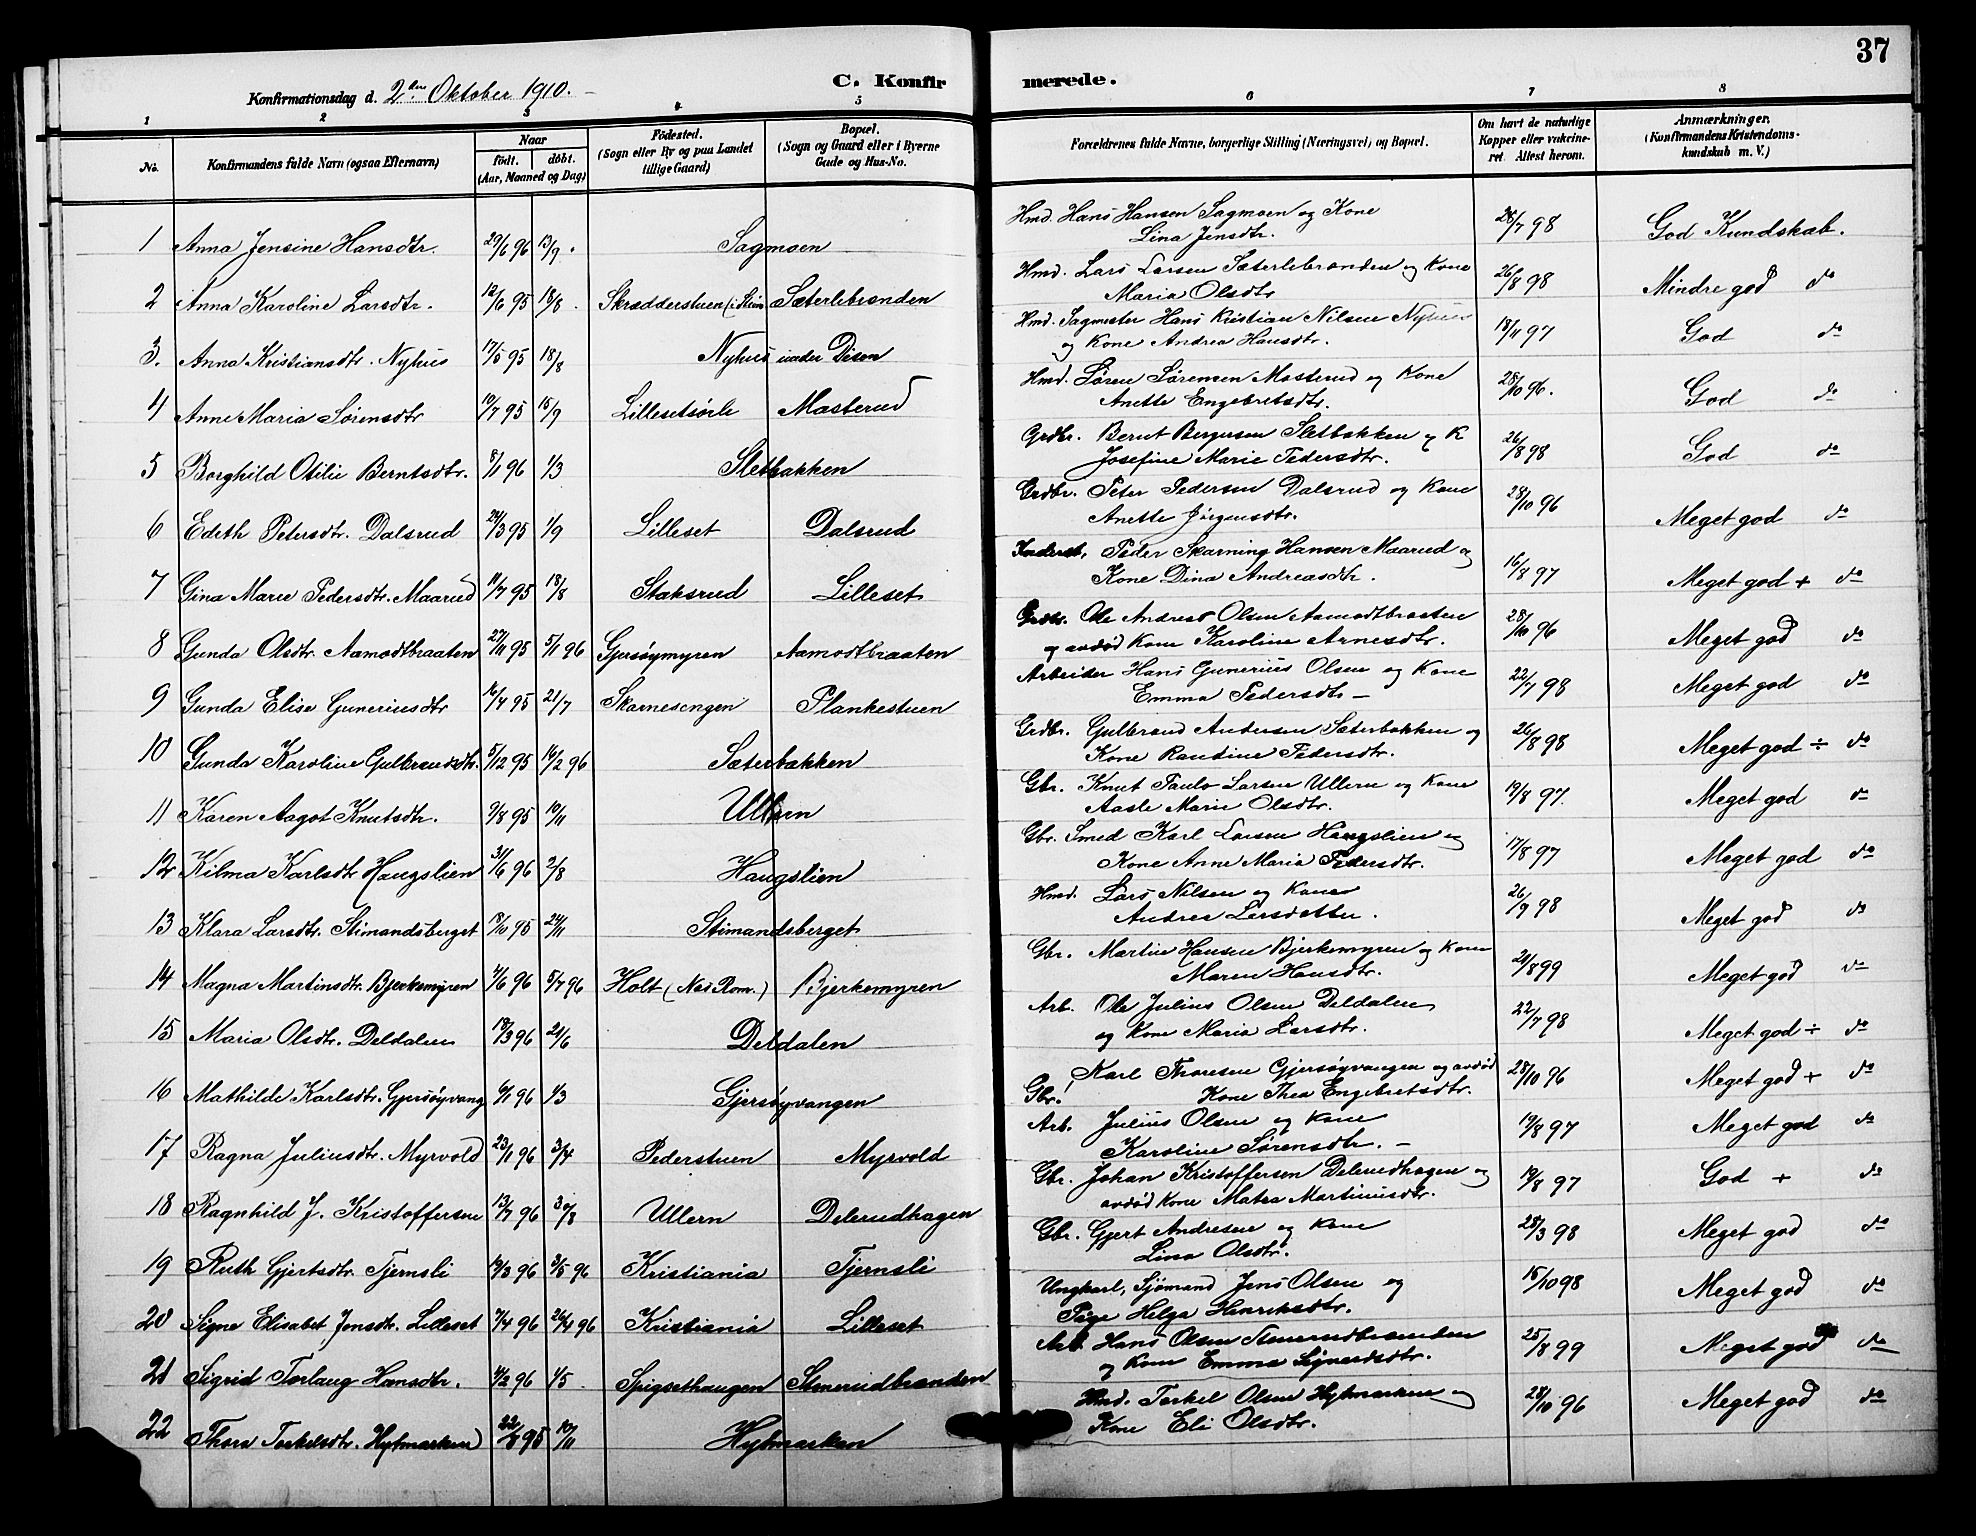 37
Konfirmationsdag d. 2den Oktober 1910. –
C. Konfirmerede.
1 2 3 4 5 6 7 8
No. Konfirmandens fulde Navn (ogsaa Efternavn) Naar født. døbt. (Aar, Maaned og Dag) Fødested. (Sogn eller By og paa Landet tillige Gaard) Bopæl. (Sogn og Gaard eller i Byerne Gade og Hus-No. Forældrenes fulde Navne, borgerlige Stilling (Næringsvei) og Bopæl. Om havt de naturlige Kopper eller vakcineret. Attest herom. Anmærkninger. (Konfirmandens Kristendomskundskab m. V.)
1 Anna Jensine Hansdtr. 29/6 96 13/9 Sagmoen Hmd. Hans Hansen Sagmoen og Kone
Lina Jensdtr. 26/7 98 God Kundskab.
2 Anna Karoline Larsdtr. 12/6 95 18/8 Skrædderstuen Sæterlebrænden Hmd. Lars Larsen Sæterlebrænden og Kone
Maria Olsdtr 26/8 98 Mindre god do
3. Anna Kristiansdtr. Nyhus 17/5 95 18/8 Nyhus under Disen Hmd. Sagmester Hans Kristian Nilsen Nyhus
og Kone Andrea Hansdtr. 18/11 97 God do
4 Anne Maria Sørensdtr 10/7 95 15/9 Lillesetsørli Masterud Hmd. Søren Sørensen Masterud og Kone
Anette Engebretsdtr. 28/10 96. God do
5 Borghild Otilie Berntsdtr. 8/1 96 1/3 Sletbakken Grdbr. Bernt Bergersen Sletbakken og K
Josefine Marie Pedersdtr. 26/8 98 God do
6 Edith Petersdtr. Dalsrud 24/3 95 1/9 Lilleset Dalsrud Grdbr. Peter Pedersen Dalsrud og Kone
Anette Jørgensdtr. 28/10 96 Meget god do
7 Gina Marie Pedersdtr. Maarud 11/7 95 18/8 Staksrud Lilleset Peder Skarning Hansen Maarud og
Kone Dina Andreasdtr. 16/8 97 Meget god + do
8 Gunda Olsdtr. Aamodtbraaten 27/11 95 5/1 96 Gjersøymyren Aamodtbraaten Grdbr. Ole Andreas Olsen Aamodtbraaten
og avdød Kone Karoline Arnesdtr. 28/10 96 Meget god do
9 Gunda Elise Guneriusdtr 16/4 95 21/7 Skarnesengen Plankestuen Arbeider Hans Gunerius Olsen og Kone
Emma Pedersdtr – 22/7 98 Meget god do
10 Gunda Karoline Gulbrandsdtr. 5/12 95 16/2 96 Sæterbakken Grdbr. Gulbrand Andersen Sæterbakken og
Kone Randine Pedersdtr. 26/8 98 Meget god ÷ do
11 Karen Aagot Knutsdtr. 9/8 95 10/11 Ullern Gbr. Knut Paulo Larsen Ullern og Kone
Aasle Marie Olsdtr. 19/8 97. Meget god do
12 Kilma Karlsdtr Haugslien 31/5 96 2/8 Haugslien Gbr. Smed Karl Larsen Haugslien og
Kone Anne Maria Pedersdtr. 17/8 97 Meget god do
13 Klara Larsdtr. Stimandsberget 18/10 95 24/11 Stimandsberget Hmd. Lars Nilsen og Kone
Andrea Larsdatter. 26/7 98 Meget god do
14 Magna Martinsdtr. Bjerkemyren 4/6 96 5/7 96 Holt (Nes Rom.) Bjerkemyren Gbr. Martin Hansen Bjerkemyren og Kone
Maren Hansdtr. 21/8 99 Meget god do
15 Maria Olsdtr. Deldalen 18/3 96 21/6 Deldalen Arb. Ole Julius Olsen Deldalen
og Kone Maria Larsdtr. 22/7 98 Meget god ÷ do
16 Mathilde Karlsdtr. Gjersøyvang 6/1 96 1/3 Gjersøyvangen Gbr. Karl Thoresen Gjersøyvangen og avdød
Kone Thea Engebretsdtr. 28/10 96 Meget god + do
17 Ragna Juliusdtr. Myrvold 23/1 96 3/4 Pederstuen Myrvold Arb. Julius Olsen og Kone
Karoline Sørensdtr. – 19/8 97 Meget god do
18 Ragnhild J. Kristoffersen 13/7 96 30/8 Ullern Delerudhagen Gbr. Johan Kristoffersen Delerudhagen og
avdød Kone Matea Martinusdtr. 19/8 97 God + do
19 Ruth Gjertsdtr. Tjernsli 19/3 96 3/5 96 Kristiania Tjernsli Gbr. Gjert Andresen og Kone
Lina Olsdtr. 28/3 98 Meget god do
20 Signe Elisabet Jensdtr. Lilleset 7/4 96 26/4 96 Kristiania Lilleset Ungkarl, Sjømand Jens Olsen og
Pige Helga Henriksdtr. 15/10 98 Meget god do
21 Sigrid Torlaug Hansdtr. 4/2 96 1/5 Spigsethaugen Stenerudbrænden Arb. Hans Olsen Stenerudbrænden
og Kone Emma Sigvardsdtr. 25/8 99 Meget god do
22 Thora Torkelsdtr. Hytmarken 22/8 95 10/11 Hytmarken Hmd. Torkel Olsen Hytmarken og
Kone Eli Olsdtr. 28/10 96 Meget god do